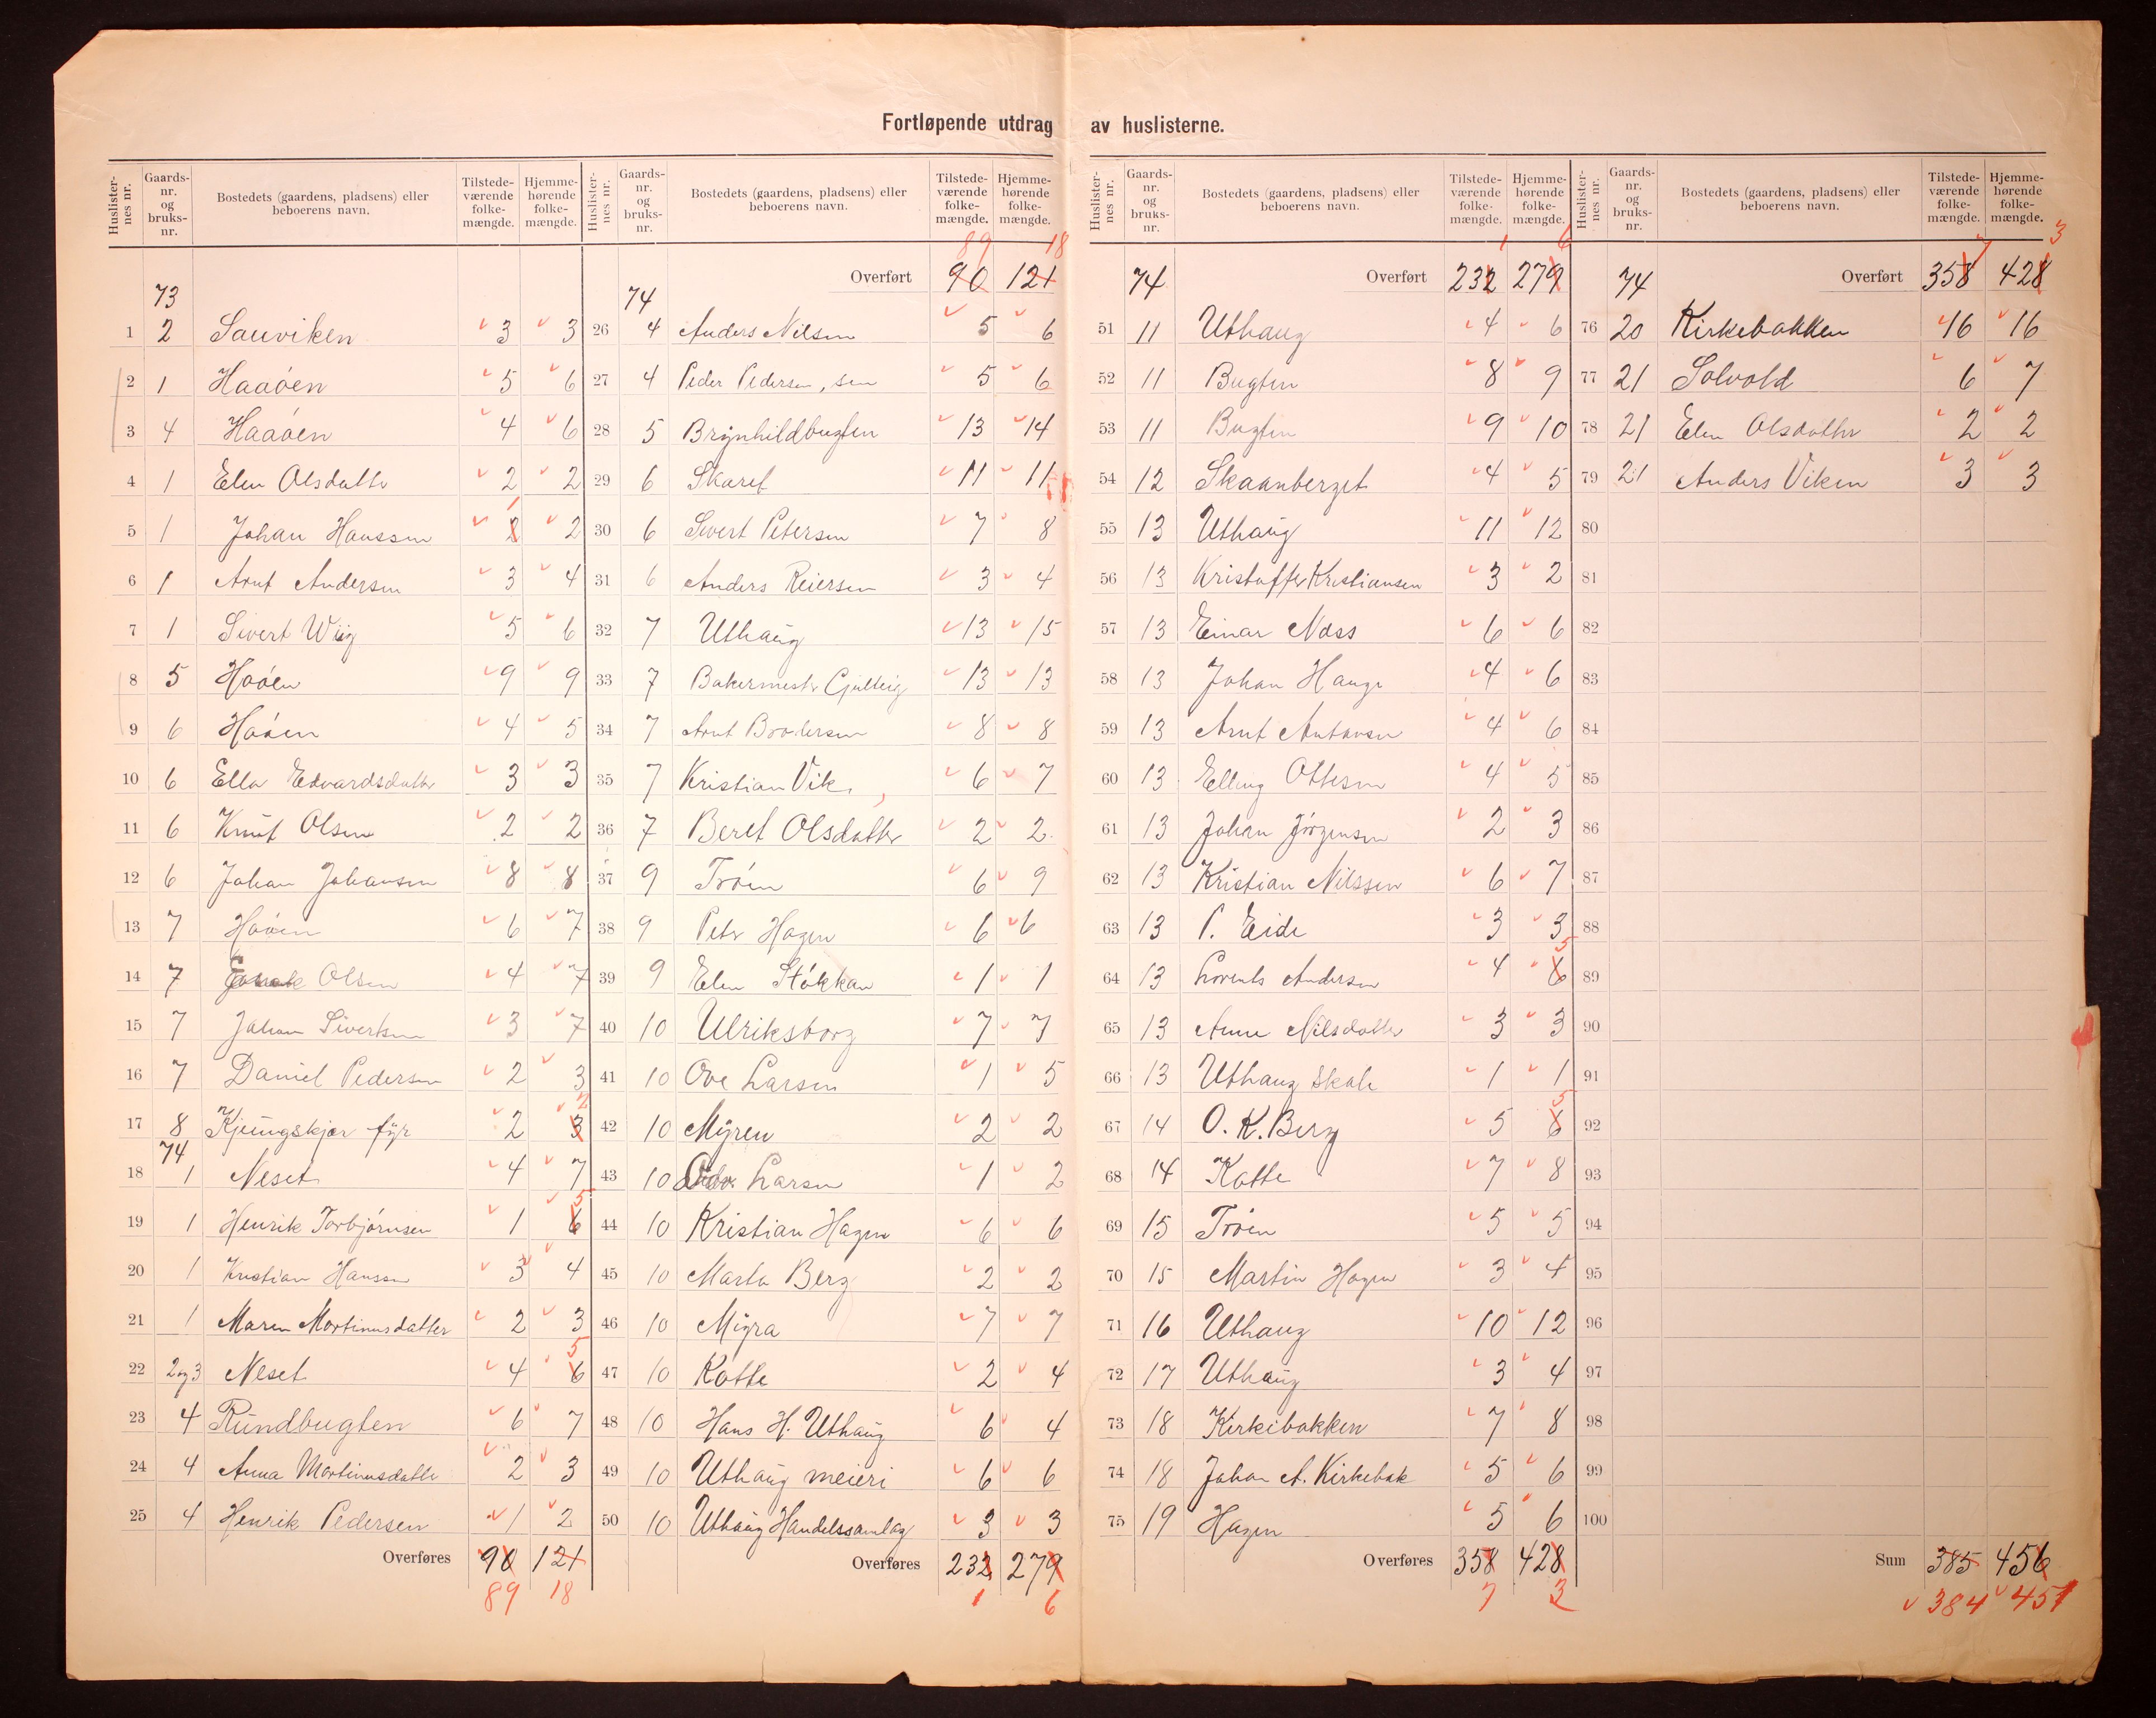 Fortløpende utdrag av huslisterne.
Huslister-nes nr. Gaards-nr. og bruks-nr. Bostedets (gaardens, pladsens) eller beboerens navn. Tilstede-værende folke-mængde. Hjemme-hørende folke-mængde.
73
1 2 Sauviken 3 3
2 1 Haaöen 5 6
3 4 Haaöen 4 6
4 1 Elen Olsdatte 2 2
5 1 Johan Hanssen 2 1 2
6 1 Arnt Andersen 3 4
7 1 Sivert Wiig 5 6
8 5 Haöen 9 9
9 6 Haöen 4 5
10 6 Ella Edvardsdatter 3 3
11 6 Knut Olsen 2 2
12 6 Johan Johansen 8 8
13 7 Haöen 6 7
14 7 Olsen 4 7
15 7 Johan Sivertsen 3 7
16 7 Daniel Pedersen 2 3
17 8 Kjeungskjær fyr 2 3 2
74
18 1 Neset 4 7
19 1 Henrik Torbjörnsen 1 6 5
20 1 Kristian Hanssen 3 4
21 1 Maren Martinusdatter 2 3
22 2og3 Neset 4 6 5
23 4 Rundbugten 6 7
24 4 Anna Martinusdatte 2 3
25 4 Henrik Pedersen 1 2
Overføres 90 121
89 18
Huslister-nes nr. Gaards-nr. og bruks-nr. Bostedets (gaardens, pladsens) eller beboerens navn. Tilstede-værende folke-mængde. Hjemme-hørende folke-mængde.
89 18
Overført 90 121
74
26 4 Anders Nilsen 5 6
27 4 Peder Pedersen, sen 5 6
28 5 Brynhildbugten 13 14
29 6 Skaret 11 11
30 6 Sivert Petersen 7 8
31 6 Anders Reiersen 3 4
32 7 Uthaug 13 15
33 7 Bakermester Gjelteig 13 13
34 7 Arnt Brodersen 8 8
35 7 Kristian Vik 6 7
36 7 Beret Olsdatter 2 2
37 9 Tröen 6 9
38 9 Peter Hagen 6 6
39 9 Elen Stökkan 1 1
40 10 Ulriksborg 7 7
41 10 Ove Larsen 1 5
42 10 Myren 2 2
43 10 Larsen 1 2
44 10 Kristian Hagen 6 6
45 10 Marta Berg 2 2
46 10 Myra 7 7
47 10 Kotte 2 4
48 10 Hans H. Uthaug 6 4
49 10 Uthaug meieri 6 6
50 10 Uthaug Handelssamlag 3 3
Overføres 232 279
1 6
Huslister-nes nr. Gaards-nr. og bruks-nr. Bostedets (gaardens, pladsens) eller beboerens navn. Tilstede-værende folke-mængde. Hjemme-hørende folke-mængde.
1 6
74 Overført 232 279
51 11 Uthaug 4 6
52 11 Bugten 8 9
53 11 Bugten 9 10
54 12 Skaanberget 4 5
55 13 Uthaug 11 12
56 13 Kristoffer Kristiansen 3 2
57 13 Einar Næss 6 6
58 13 Johan Hauge 4 6
59 13 Arnt Antonsen 4 6
60 13 Elling Ottesen 4 5
61 13 Johan Jörgensen 2 3
62 13 Kristian Nilssen 6 7
63 13 P. Eide 3 3
64 13 Lorents Andersen 4 6 5
65 13 Anne Nilsdatter 3 3
66 13 Uthaug Skole 1 1
67 14 O. K. Berg 5 6 5
68 14 Kotte 7 8
69 15 Tröen 5 5
70 15 Martin Hagen 3 4
71 16 Uthaug 10 12
72 17 Uthaug 3 4
73 18 Kirkebakken 7 8
74 18 Johan A. Kirkebak 5 6
75 19 Hagen 5 6
Overføres 358 428
7 3
Huslister-nes nr. Gaards-nr. og bruks-nr. Bostedets (gaardens, pladsens) eller beboerens navn. Tilstede-værende folke-mængde. Hjemme-hørende folke-mængde.
7 3
74 Overført 358 428
76 20 Kirkebakken 16 16
77 21 Solvold 6 7
78 21 Elen Olsdatter 2 2
79 21 Anders Viken 3 3
80
81
82
83
84
85
86
87
88
89
90
91
92
93
94
95
96
97
98
99
100
Sum 385 456
384 451